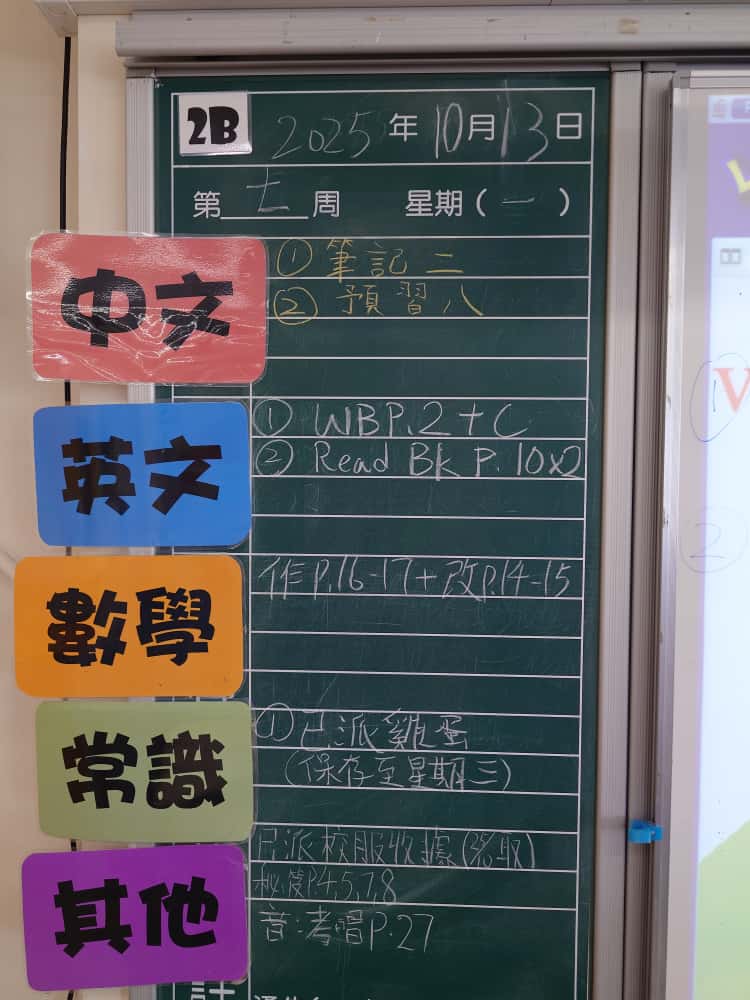 2B
2025年10月13日
第七周 星期（一）
中文
①筆記二
②預習八
英文
① WBP.2+C
② Read Bk P.10x2
數學
作P.16-17+改P.14-15
常識
①已派雞蛋
(保存至星期三)
其他
已派校服收據(袋取)
P.4,5,7,8
音:考唱P.27